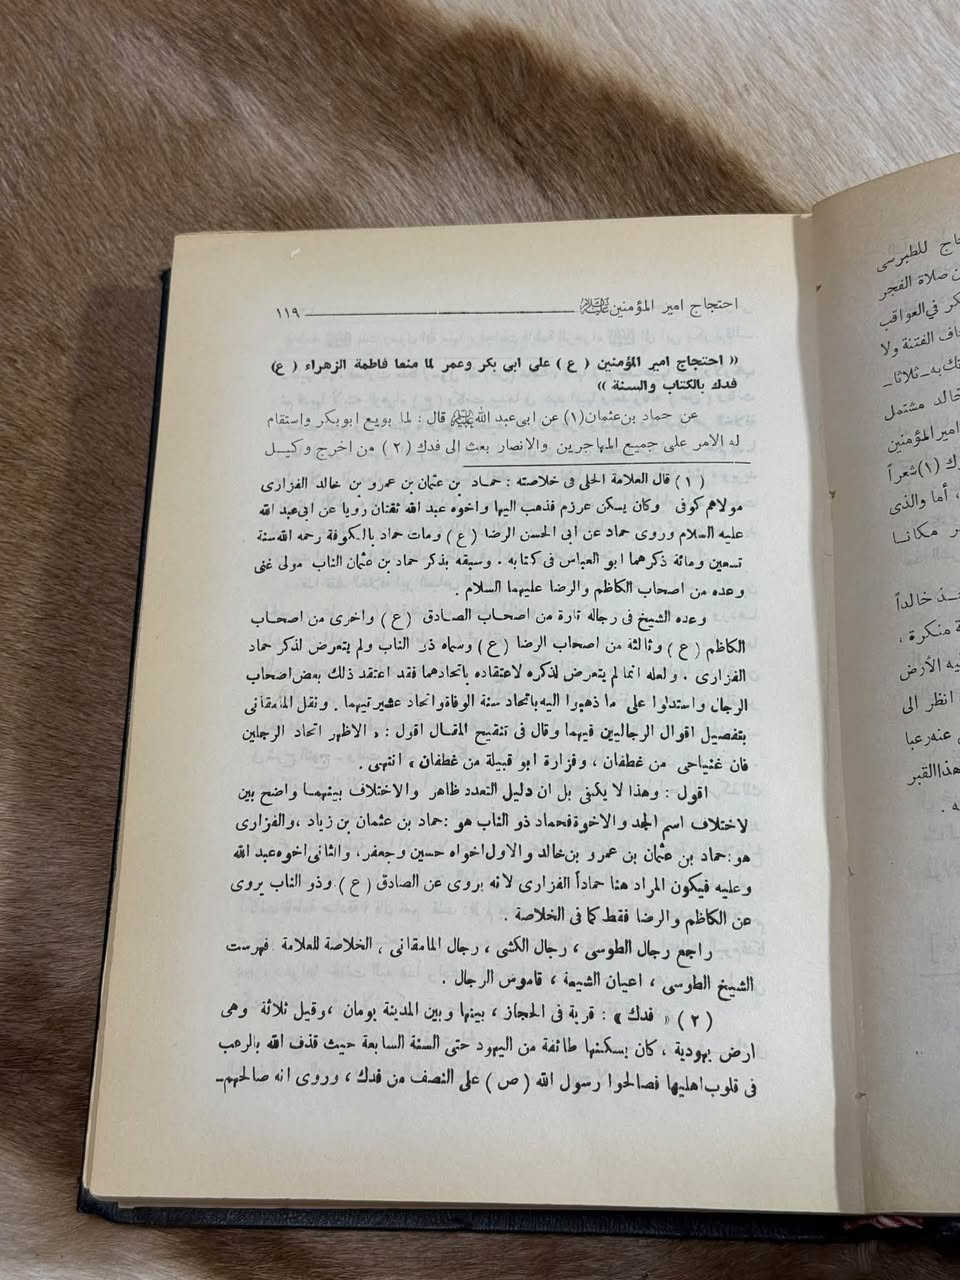 احتجاج امير المؤمنين عليه السلام ١١٩
« احتجاج امير المؤمنين ( ع ) على ابى بكر وعمر لما منعا فاطمة الزهراء ( ع )
فدك بالكتاب والسنة »
عن حماد بن عثمان (١) عن ابى عبد الله عليه السلام قال : لما بويع ابوبكر واستقام
له الامر على جميع المهاجرين والانصار بعث الى فدك ( ٢ ) من اخرج وكيل
( ١ ) قال العلامة الحلى فى خلاصته : حماد بن عثمان بن عمرو بن خالد الفزارى
مولاهم كوفى وكان يسكن عرزم فذهب اليها واخوه عبد الله ثقتان رويا عن ابى عبد الله
عليه السلام وروى حماد عن ابى الحسن الرضا ( ع ) ومات حماد بالكوفة رحمه الله سنة
تسعين ومائة ذكرهما ابو العباس فى كتابه . وسبقه بذكر حماد بن عثمان الناب مولى غنى
وعده من اصحاب الكاظم والرضا عليهما السلام .
وعده الشيخ فى رجاله تارة من اصحاب الصادق ( ع ) واخرى من اصحاب
الكاظم ( ع ) وثالثة من اصحاب الرضا ( ع ) وسماه ذو الناب ولم يتعرض لذكر حماد
الفزارى . ولعله انما لم يتعرض لذكره لاعتقاده باتحادهما فقد اعتقد ذلك بعض اصحاب
الرجال واستدلوا على ما ذهبوا اليه باتحاد سنة الوفاة واتحاد عشيرتيهما . ونقل المامقانى
بتفصيل اقوال الرجاليين فيهما وقال فى تنقيح المقال اقول : « الاظهر اتحاد الرجلين
فان غنياحى من غطفان ، وفزارة ابو قبيلة من غطفان » انتهى .
اقول : وهذا لا يكفى بل ان دليل التعدد ظاهر والاختلاف بينهما واضح بين
لاختلاف اسم الجد والاخوة فحماد ذو الناب هو : حماد بن عثمان بن زياد ، والفزارى
هو : حماد بن عثمان بن عمرو بن خالد والاول اخواه حسين وجعفر ، والثانى اخوه عبد الله
وعليه فيكون المراد هنا حماداً الفزارى لانه يروى عن الصادق ( ع ) وذو الناب يروى
عن الكاظم والرضا فقط كما فى الخلاصة .
راجع رجال الطوسى ، رجال الكشى ، رجال المامقانى ، الخلاصة للعلامة . فهرست
الشيخ الطوسى ، اعيان الشيعة ، قاموس الرجال .
( ٢ ) « فدك » : قرية فى الحجاز ، بينها وبين المدينة يومان ، وقيل ثلاثة وهى
ارض يهودية ، كان يسكنها طائفة من اليهود حتى السنة السابعة حيث قذف الله بالرعب
فى قلوب اهليها فصالحوا رسول الله ( ص ) على النصف من فدك ، وروى انه صالحهم–
للطبرسى
صلاة الفجر
فى العواقب
الفتنة ولا
به ـ ثلاثا ـ
خالد مشتمل
امير المؤمنين
(١) شعراً
، أما والذى
مكانا
خالداً
منكرة ،
الأرض
انظر الى
عنه رعبا
هذا القبر